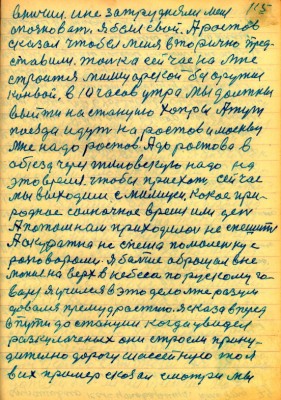 115
врачии. и не затрудняли меня
опозноват. я был свой. А ростов
сказал чтобы меня вторично пред-
ставили. только сейчас на мне
строится милицарской вооружи
конвой, в 10 часов утра мы должны
выити на станцию хопры
поезда идут на ростов и москву
мне надо ростов. А до ростова в
обезд через тиховескую надо на
это время. чтобы приехат. сейчас
мы выходили с милицеи, какое при-
родное солнечное время или ден
А потом нам приходилос не спешити
Аккуратна не спеша помаленку с
розговорами. я балше оброщал вне
мание на верх в небеса по рускому го-
варя я учился в это дело мне разум
довался премудрастию. я сказа вперед
в пути до станции когда увидел
раскулаченых они строели прину-
дително дорогу шоссейную то я
в их пример сказал смотри мы